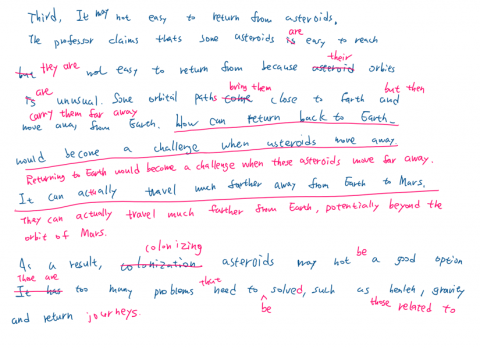 Third, It may not easy to return from asteroids.
The professor claims thats some asteroids is are easy to reach
but they are not easy to return from because asteroid their orbits
is are unusual. Some orbital paths come bring them close to Earth and but then
carry them far away
move away from Earth. How can return back to Earth
would become a challenge when asteroids move away
Returning to Earth would become a challenge when these asteroids move far away.
It can actually travel much farther away from Earth to Mars.
They can actually travel much farther from Earth, potentially beyond the
orbit of Mars.
As a result, colonization colonizing asteroids may not be a good option
It has There are too many problems that need to be solved, such as health, gravity
and return journeys. those related to